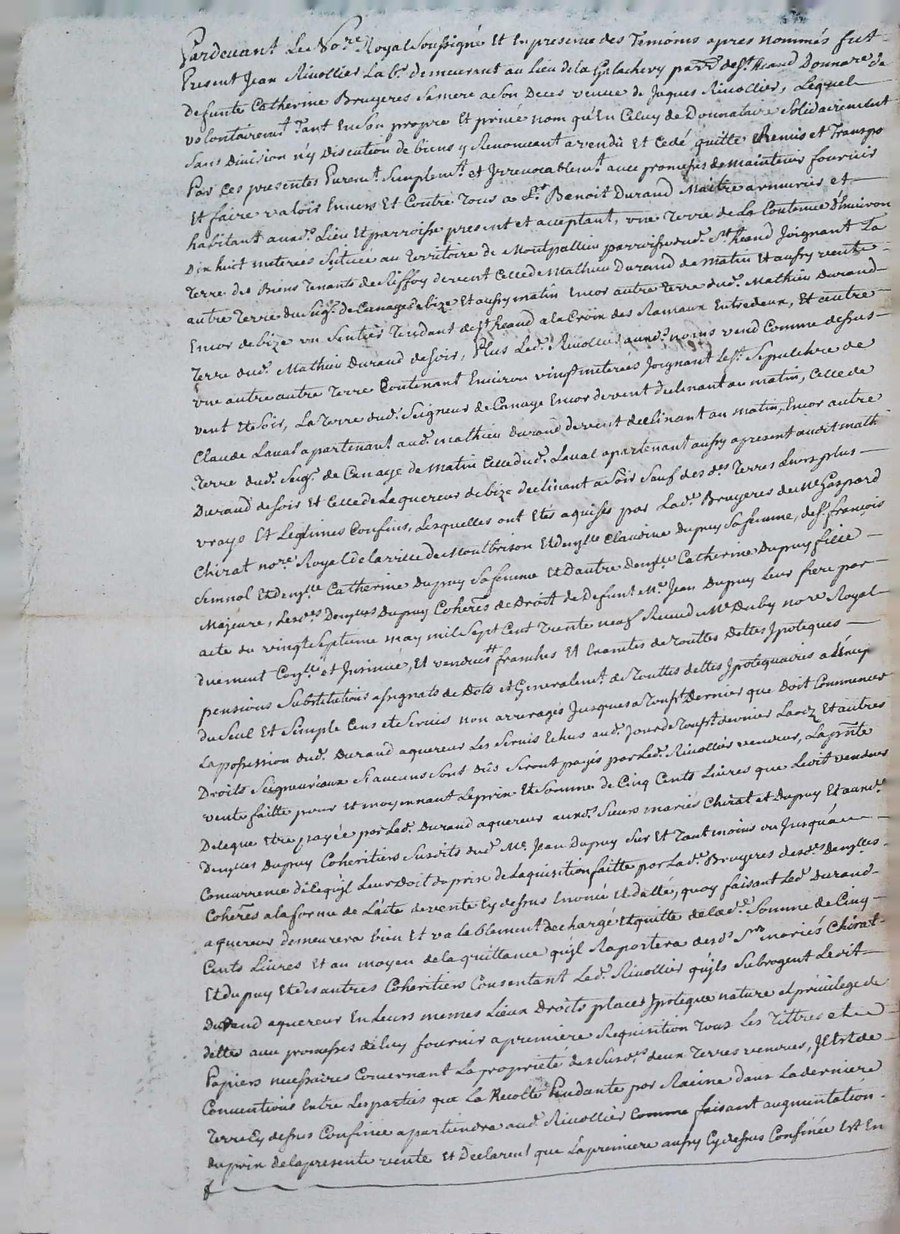 Pardevant Le No.re Royal Soussigné Et En presence des Temoins apres nommés fut
Present Jean Rivollier La.br demeurant au Lieu de la Galachery parr.e de S.t heand Donnataire de
defunte Catherine Bruyeres Sa mere a Son Deces veuve de Jaques Rivollier, Lequel
volontairem.t Tant En Son propre Et privé nom qu'En Celuy de Donnataire Solidairement
Sans Division n'y Discution de biens y Renonceant a vendu Et Cedé quitté Remis et Transpo
Par Ces presentes Purem.t Simplem.t et Irrevocablem.t avec promesses de maintenir fournir
Et faire valoir Envers Et Contre Tous a S.r Benoit Durand Maitre armurier et
habitant aud. Lieu Et parroisse present et acceptant, une Terre de La Contenue d'Environ
Dix huit meterées Scituée au Territoire de Montpallieu parroisse dud. S.t heand Joignant La
Terre des Biens Tenants de Riffoy de vent Celle de Mathieu Durand de matin Et aussy vente
autre Terre du Seig.r de Cenage de bize Et aussy matin Encor autre Terre dud. Mathieu Durand
Encor de bize un Sentier Tendant de S.t heand a la Croix des Rameaux Entredeux, Et autre
Terre dud. Mathieu Durand de Soir; Plus Led. Rivollier aud. noms vend Comme dessus
une autre autre Terre Contenant Environ vingt meterées Joignant le S.t Sepulchre de
vent Et Soir, La Terre dud. Seigneur de Cenage Encor de vent declinant au matin, Celle de
Claude Laval apartenant aud. mathieu Durand de vent declinant au matin, Encor autre
Terre dud. Seig.r de Cenage de Matin Celle dud. Laval apartenant aussy apresent audit math
Durand de Soir et Celle de Laquereur de bize declinant a Soir Sauf des d.es Terres Leurs plus
vrays Et Legitimes Confins, Lesquelles ont Etés aquises par Lad. Bruyeres de M.e Gaspard
Chirat no.re Royal de la ville de Montbrison Et de Demy.lle Claudine dupuy Sa femme, de S.r françois
Semnol Et Demy.lle Catherine Dupuy Sa femme Et d'autre Demy.lle Catherine Dupuy fille
Majeure, Lesd.es Demy.lles Dupuy Coher.es de Droit de Defunt M.e Jean Dupuy Leur frere par
acte du vingt Septieme may mil Sept Cent Trente neuf Receu M.e Duby no.re Royal
duement Con.llé et Insinué, Et vendues franches Et Exemtes de Touttes dettes Ipoteques
pensions Substitutions assignats de Dots et Generalem.t de Touttes dettes Ipotequaires a L'excep
du Seul Et Simple Cens et Servis non arreragés Jusques a Touss.t Dernier que Doit Commencer
La possession dud. Durand aquereur Les Servis Echus aud. Jour de Touss.t dernier Laods Et autres
Droits Seigneuriaux Si aucuns Sont Dûs Seront payés par Led. Rivollier vendeur, La p.nte
vente faitte pour Et moyennant Le prix Et Somme de Cinq Cents Livres que Ledit vendeur
Delegue Etre payée par Led. Durand aquereur auxd. Sieurs mariés Chirat et Dupuy Et auxd.
Demy.lles Dupuy Coheritiers Susdits dud. M.e Jean Dupuy Sur Et Tant moins ou Jusqu'a
Concurrence de Ce qu'il Leur Doit du prix de L'aquisition faitte par Lad. Bruyeres desd.es Demy.lles
Coher.es a la forme de L'acte de vente Cy dessus Enoncé Et Datté, quoy faisant Led. Durand
aquereur demeurera bien Et valablement dechargé Et quitte de lad.e Somme de Cinq
Cents Livres Et au moyen de la quittance qu'il Raportera desd. S.rs mariés Chirat
Et dupuy Et desautres Coheritiers Consentant Led. Rivollier qu'ils Subrogent Ledit
Durand aquereur En Leurs memes Lieux Droits place Ipoteque nature et privilege de
dette avec promesses de Luy fournir a premiere Requisition Tous Les Tittres et
Papiers necessaires Concernant La proprieté des Susd.es deux Terres vendues, Il Est de
Conventions Entre Les parties que La Recolte Pendante par Racine dans La derniere
Terre Cy dessus Confinée apartiendra aud. Rivollier Comme faisant augmentation
du prix de la presente vente Et Declarent que La premiere aussy Cy dessus Confinée Est En